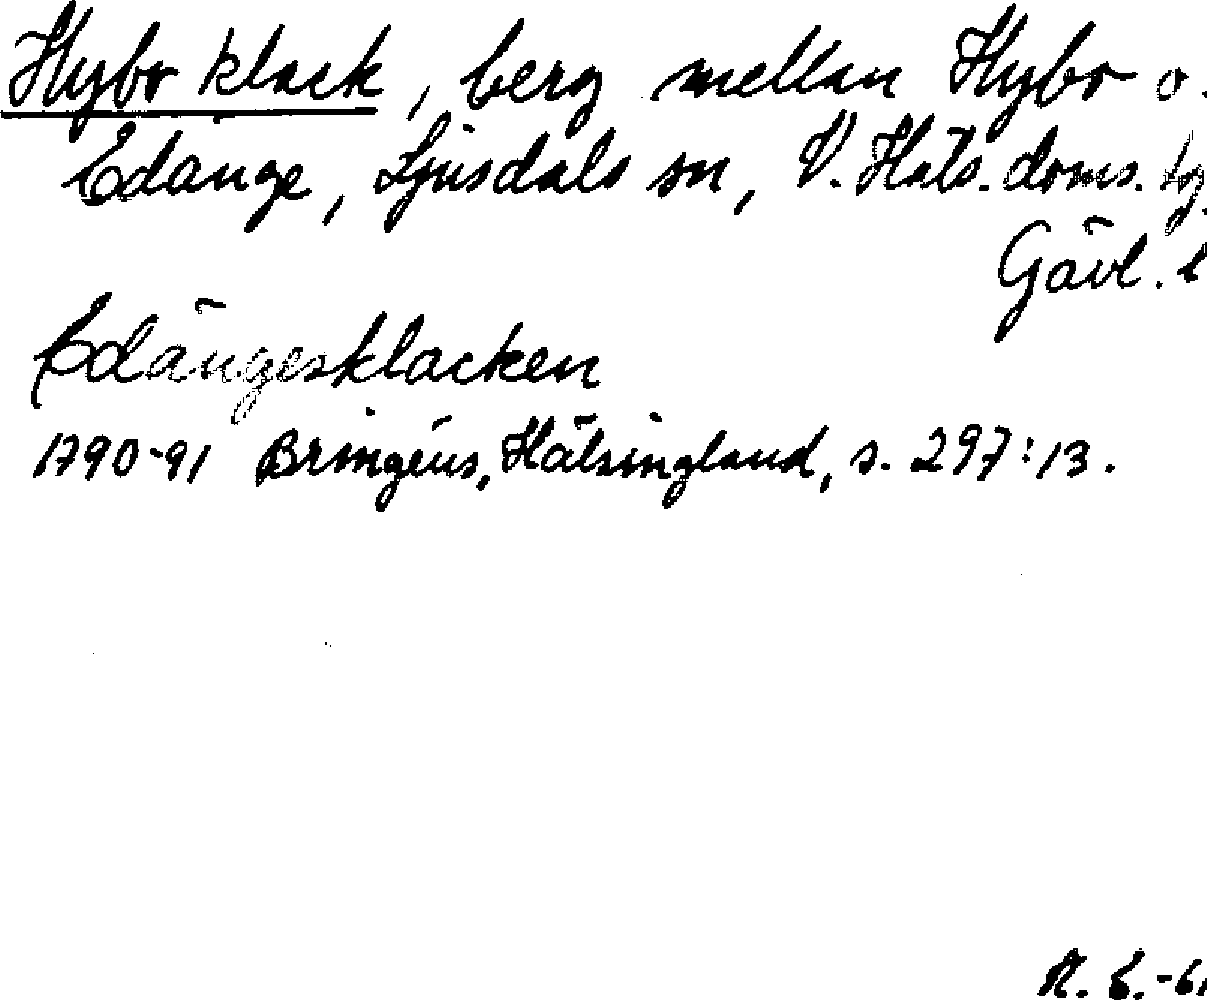 Hybo klack, berg mellan Hybo o.
Edänge, Ljusdals sn, V. Häls. doms. sg.
Gävl. l
Edängesklacken
1790-91 Bringéus, Hälsingland, s. 297:13.
-61